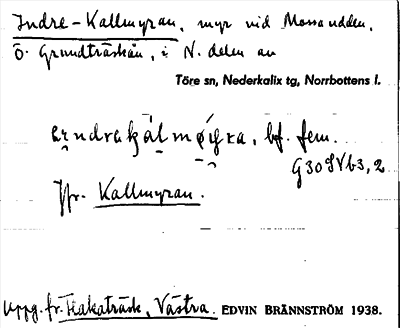 Indre-Kallmyran, myr vid Mossaudden,
Ö. Grundträskån, i N. delen av
Töre sn, Nederkalix tg, Norrbottens l.
bf. fem.
G30SVb3,2
Jfr. Kallmyran.
Uppg. fr. Flakaträsk, Västra. EDVIN BRÄNNSTRÖM 1938.